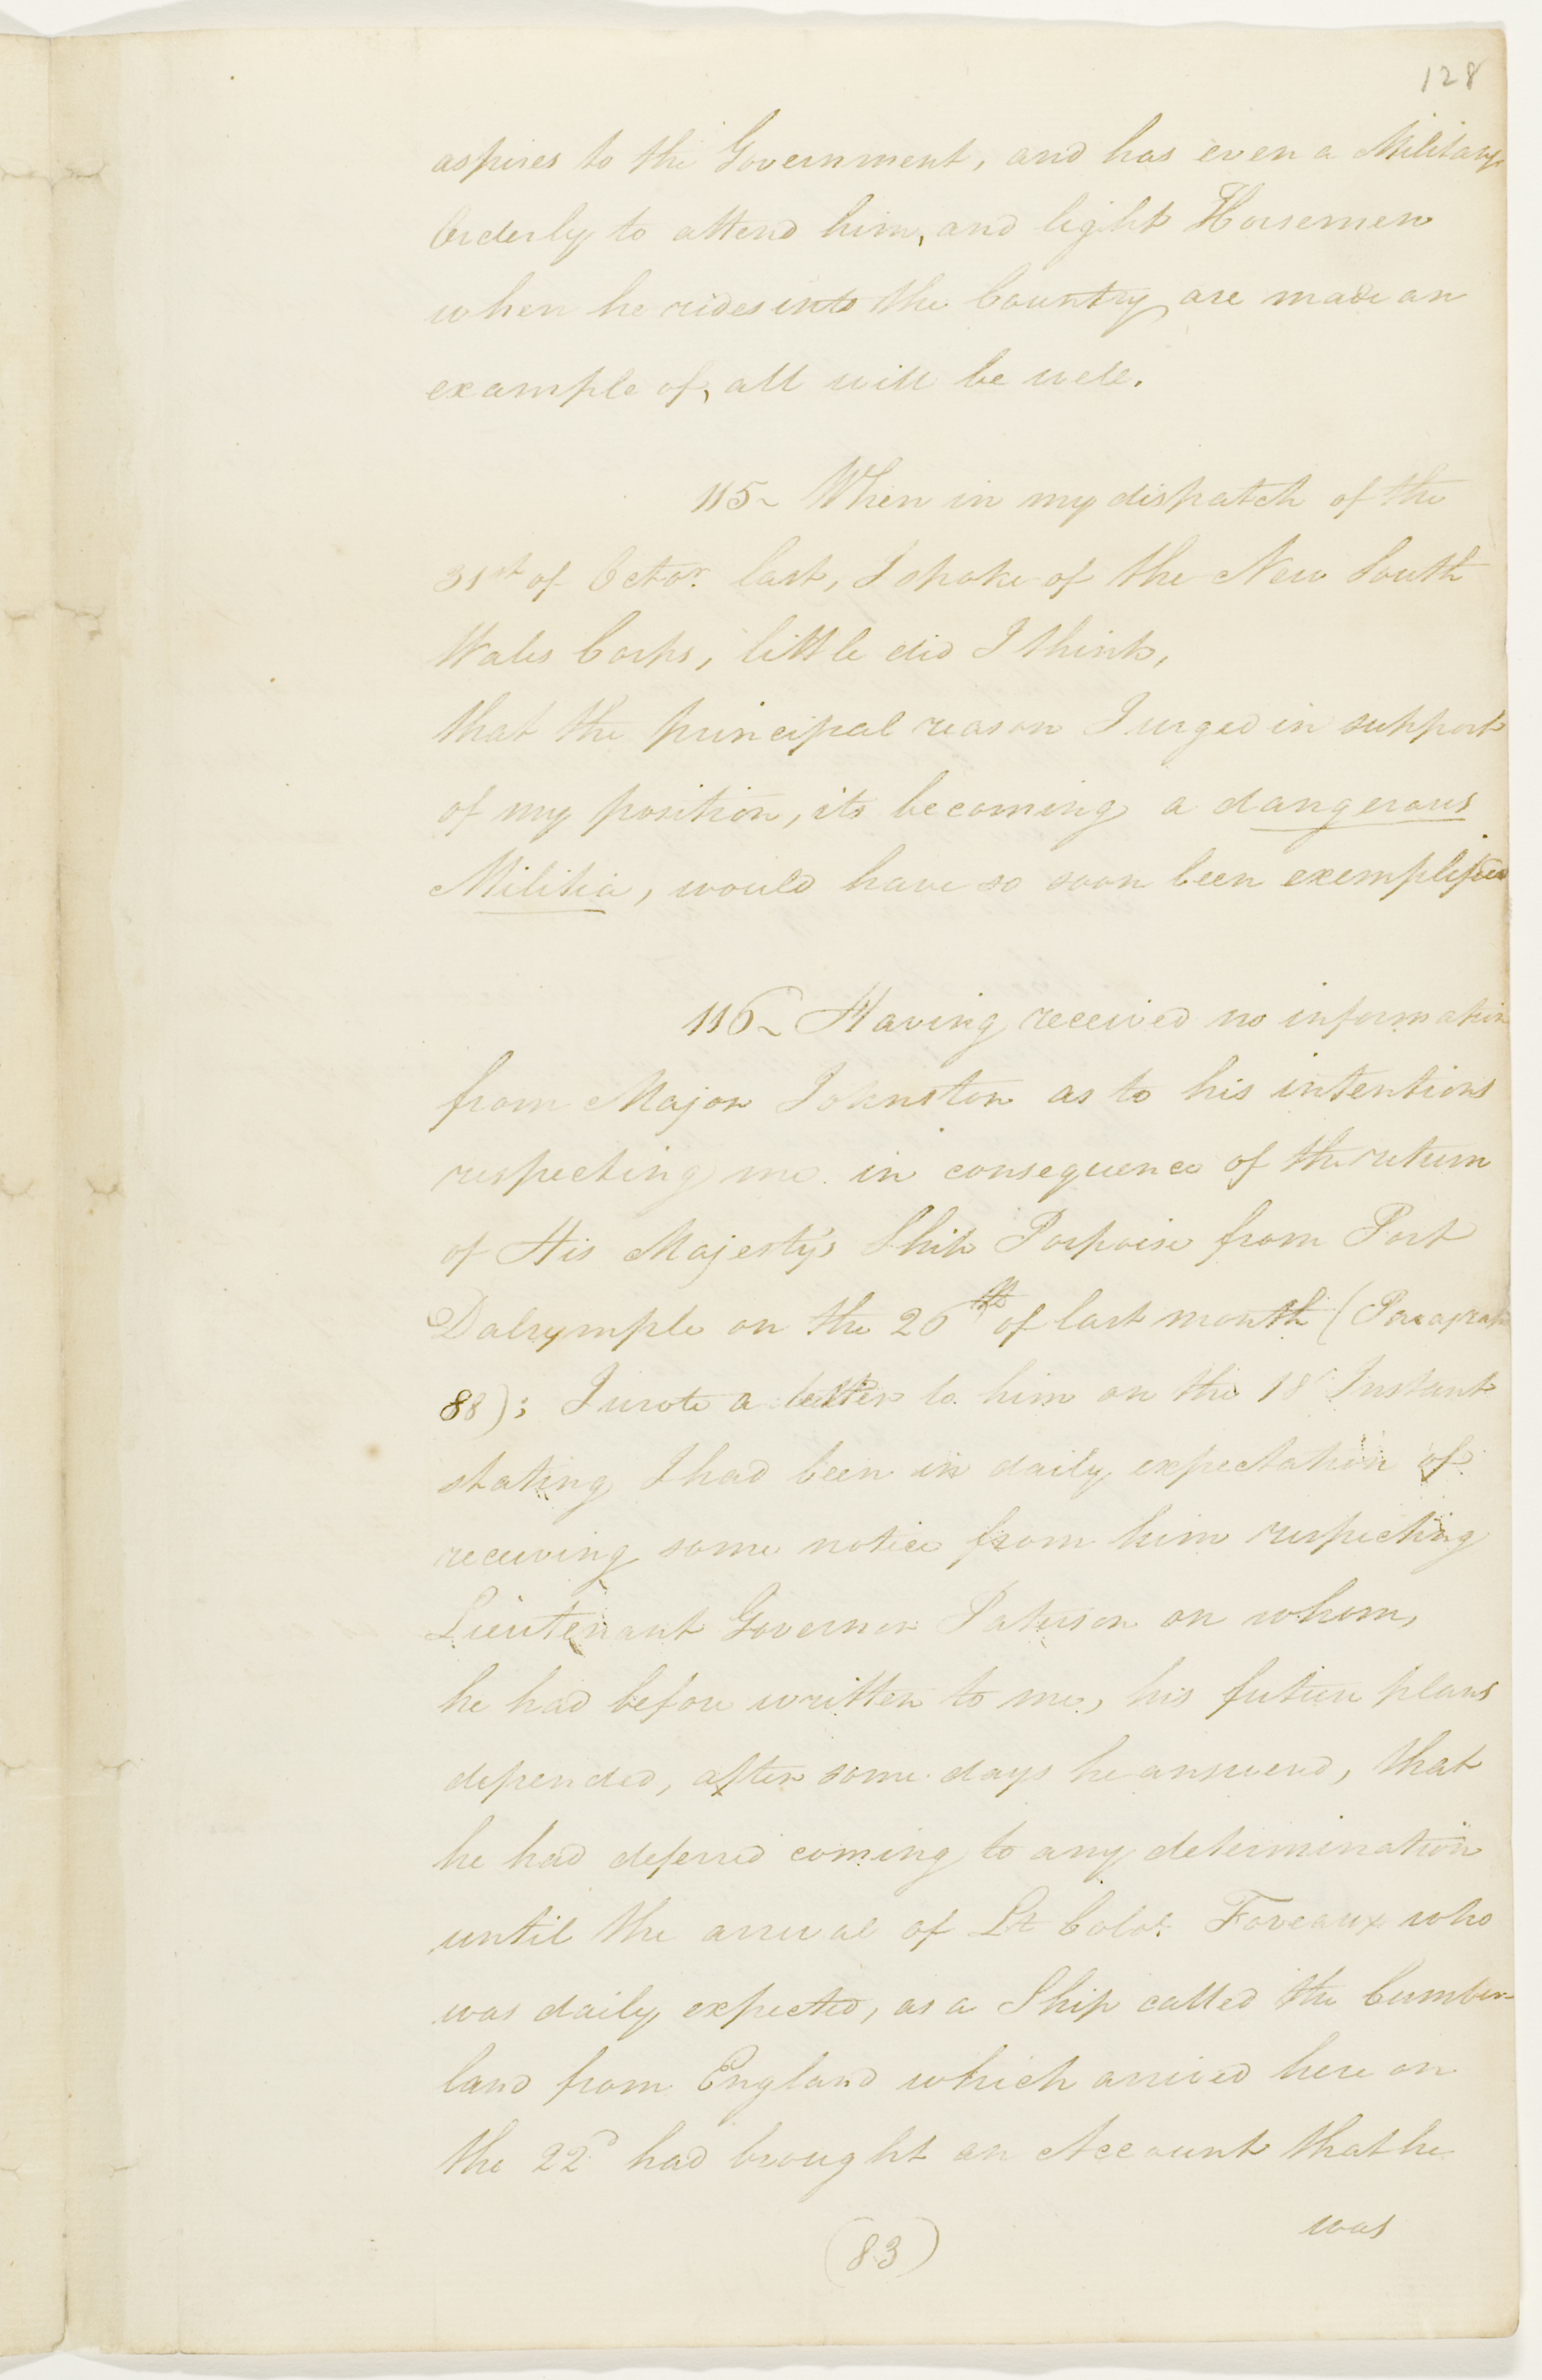 128
aspires to the Government, and has even a Military
Orderly to attend him, and light Horsemen
when he rides into the Country, are made an
example of, all will be well.
115~ When in my dispatch of the
31st of Octor. last, I spoke of the New South
Wales Corps, little did I think,
that the principal reason I urged in support
of my position, its becoming a dangerous
Militia, would have so soon been exemplified
116~ Having received no information
from Major Johnston as to his intentions
respecting me in consequence of the return
of His Majesty's Ship Porpoise from Port
Dalrymple on the 26th of last month (Paragraph
88); I wrote a letter to him on the 18 Instant
stating I had been in daily expectation of
receiving some notice from him respecting
Lieutenant Governor Paterson on whom,
he had before written to me, his future plans
depended, after some days he answered, that
he had deferred coming to any determination
until the arrival of Lt Colol. Foveaux who
was daily expected, as a Ship called the Cumber-
land from England which arrived here on
the 22d had brought an Account that he
was
(83)